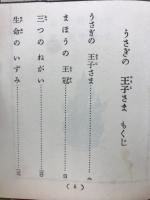 うさぎの 王子さま もくじ
うさぎの 王子さま
まほうの 王冠
三つの ねがい
生命の いずみ
( 6 )